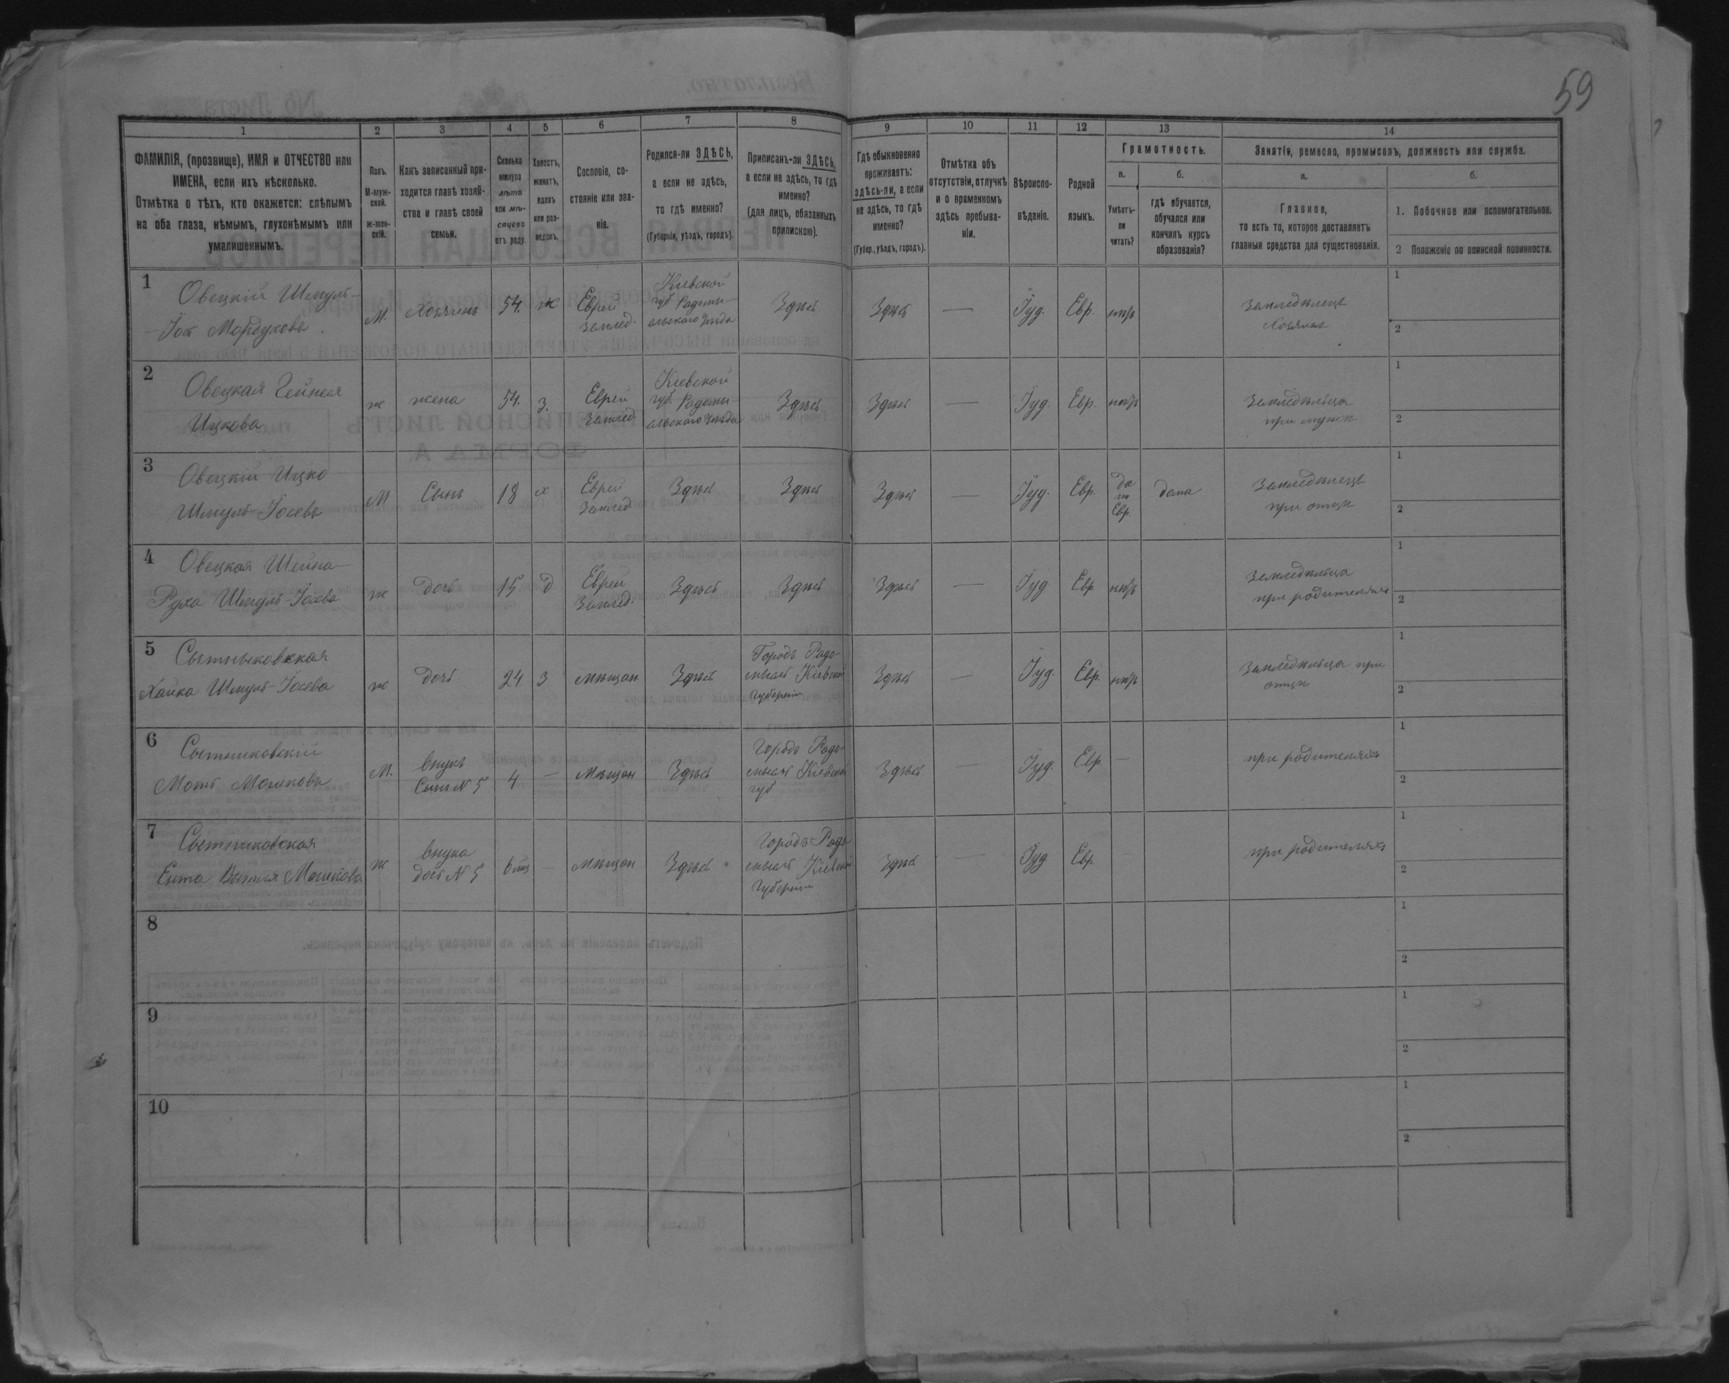 59
1 2 3 4 5 6 7 8 9 10 11 12 13 14
ФАМИЛІЯ, (прозвище), ИМЯ и ОТЧЕСТВО или
ИМЕНА, если ихъ нѣсколько.
Отмѣтка о тѣхъ, кто окажется: слѣпымъ
на оба глаза, нѣмымъ, глухонѣмымъ или
умалишеннымъ.
Полъ.
М-муж-
ской.
ж-жен-
скій.
Какъ записанный при-
ходится главѣ хозяй-
ства и главѣ своей
семьи.
Сколько
минуло
лѣтъ
или мѣ-
сяцевъ
отъ роду.
Холостъ,
женатъ,
вдовъ
или раз-
веденъ.
Сословіе, со-
стояніе или зва-
ніе.
Родился-ли ЗДѢСЬ,
а если не здѣсь,
то гдѣ именно?
(Губернія, уѣздъ, городъ).
Приписанъ-ли ЗДѢСЬ,
а если не здѣсь, то гдѣ
именно?
(для лицъ, обязанныхъ
припискою).
Гдѣ обыкновенно
проживаетъ:
здѣсь-ли, а если
не здѣсь, то гдѣ
именно?
(Губер., уѣздъ, городъ).
Отмѣтка объ
отсутствіи, отлучкѣ
и о временномъ
здѣсь пребыва-
ніи.
Вѣроиспо-
вѣданіе.
Родной
языкъ.
Грамотность.
а.
Умѣетъ-
ли
читать?
б.
гдѣ обучается,
обучался или
кончилъ курсъ
образованія?
Занятіе, ремесло, промыселъ, должность или служба.
а.
Главное,
то есть то, которое доставляетъ
главныя средства для существованія.
б.
1. Побочное или вспомогательное.
2 Положеніе по воинской повинности.
1
Овецкій Шмуль-
-Іос Мордухова
М.
Хозяинъ
54.
ж
Еврей
Землед.
Кіевской
губ Радомы-
сльского уезда
Здѣсь
Здѣсь
—
Іуд.
Евр.
нѣтъ
Земледѣлецъ
Хозяинъ
1
2
2
Овецкая Гейнея
Ицкова
ж
жена
54.
З.
Еврей
Землед
Кіевской
губ Радомы-
сльского уезда
Здѣсь
Здѣсь
—
Іуд.
Евр.
нѣтъ
Земледѣлица
при мужѣ
1
2
3
Овецкій Ицко
Шмуль-Іосевъ
М
Сынъ
18
х
Еврей
Землед
Здѣсь
Здѣсь
Здѣсь
—
Іуд.
Евр.
да
по
Евр.
дома
Земледѣлецъ
при отцѣ
1
2
4
Овецкая Шейна-
Руха Шмуль-Іосева
ж
Дочь
15
д
Еврей
Землед.
Здѣсь
Здѣсь
Здѣсь
—
Іуд
Евр
нѣтъ
Земледѣлица
при родителяхъ
1
2
5
Сытниковская
Хайка Шмуль-Іосева
ж
Дочь
24
З
мѣщан
Здѣсь
Городъ Радо-
мысль Кіевской
губерніи
Здѣсь
—
Іуд
Евр.
нѣтъ
Земледѣлица при
отцѣ
1
2
6
Сытниковскій
Моть Мошковъ
М.
внукъ
Сынъ №5
4
—
мѣщан
Здѣсь
Городъ Радо-
мысль Кіевской
губ
Здѣсь
—
Іуд.
Евр
—
при родителяхъ
1
2
7
Сытниковская
Ента Мошкова
ж
внука
дочь №5
6 мѣ
—
мѣщан
Здѣсь
Городъ Радо-
мысль Кіевской
Губерніи
Здѣсь
—
Іуд
Евр
при родителяхъ
1
2
8
1
2
9
1
2
10
1
2